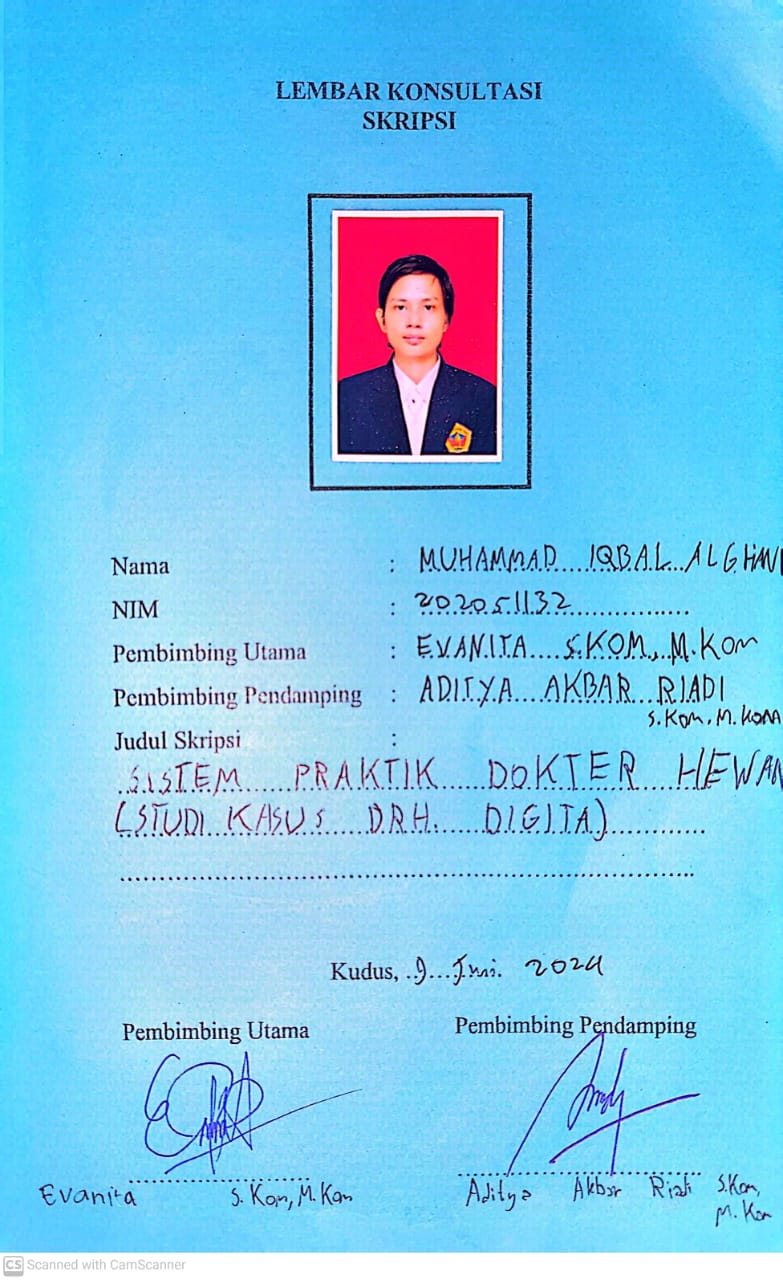 LEMBAR KONSULTASI
SKRIPSI
Nama : MUHAMMAD IQBAL ALGHANI
NIM : 202051132
Pembimbing Utama : EVANITA S.KOM., M.KOM
Pembimbing Pendamping : ADITYA AKBAR RIADI
S.KOM, M.KOM
Judul Skripsi :
SISTEM PRAKTIK DOKTER HEWAN
(STUDI KASUS DRH. DIGITA)
Kudus, 9 Juni 2024
Pembimbing Utama Pembimbing Pendamping
Evanita S.Kom, M.Kom Aditya Akbar Riadi S.Kom,
M.Kom
CS Scanned with CamScanner